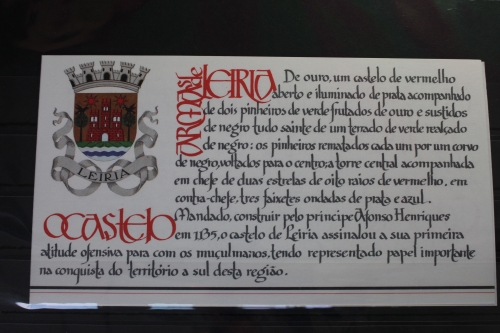 ARMAS de LEIRIA
De ouro, um castelo de vermelho
aberto e iluminado de prata acompanhado
de dois pinheiros de verde frutados de ouro e sustidos
de negro tudo sainte de um terrado de verde realçado
de negro; os pinheiros rematados cada um por um corvo
de negro, voltados para o centro; a torre central acompanhada
em chefe de duas estrelas de oito raios de vermelho, em
contra-chefe, tres faixetes ondadas de prata e azul.
LEIRIA
O CASTELO
Mandado, construir pelo principe Afonso Henriques
em 1135, o castelo de Leiria assinalou a sua primeira
atitude ofensiva para com os muçulmanos, tendo representado papel importante
na conquista do território a sul desta região.